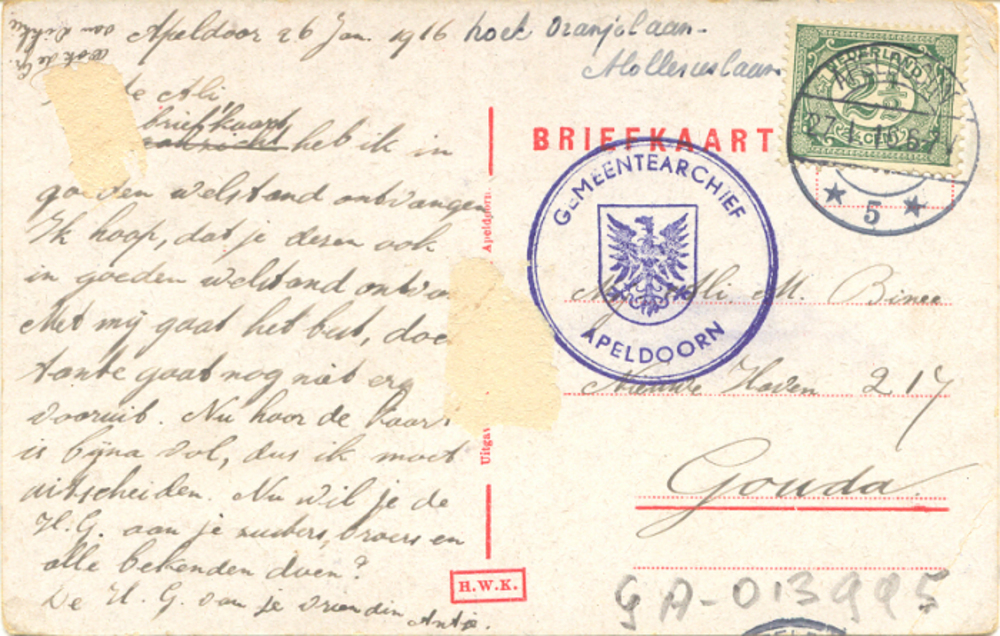 Apeldoor 26 Jan. 1916 hoek Oranjelaan-
Mollerus laan
Ook de Gr.
van Rikkie
Ali
briefkaart
heb ik in
goeden welstand ontvangen
Ik hoop, dat je deren ook
in goeden welstand
Met mij gaat het best, doc
tante gaat nog niet erg
vooruit. Nu hoor de kaart
is bijna vol, dus ik moet
uitscheiden. Nu wil je de
H.G. aan je zusters, broers en
alle bekenden doen?
De H.G. van je vriendin Antje.
BRIEFKAART
NEDERLAND
2½
CENT
27.1.16.5-
5
GEMEENTEARCHIEF
APELDOORN
Apeldoorn.
Uitgav
H.W.K.
Ali. M. Binee
Nieuwe Haven 217
Gouda.
GA-013995